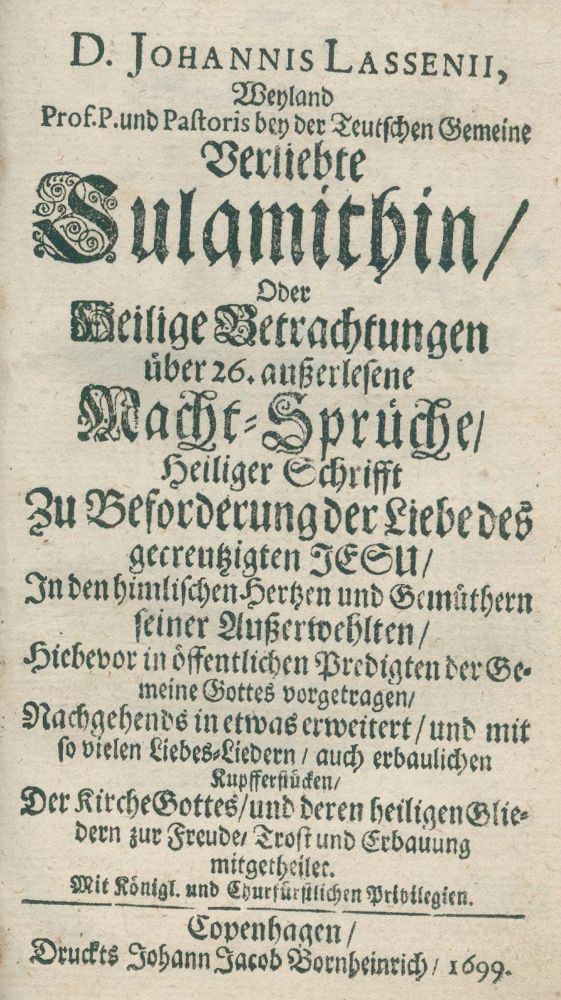 D. JOHANNIS LASSENII,
Weyland
Prof. P. und Pastoris bey der Teutschen Gemeine
Verliebte
Sulamithin/
Oder
Heilige Betrachtungen
über 26. außerlesene
Macht-Sprüche/
Heiliger Schrifft
Zu Beforderung der Liebe des
gecreutzigten JESU/
In den himlischen Hertzen und Gemüthern
seiner Außerwehlten/
Hiebevor in öffentlichen Predigten der Ge-
meine Gottes vorgetragen/
Nachgehends in etwas erweitert/ und mit
so vielen Liebes-Liedern/ auch erbaulichen
Kupfferstücken/
Der Kirche Gottes/ und deren heiligen Glie-
dern zur Freude/ Trost und Erbauung
mitgetheilet.
Mit Königl. und Churfürstlichen Privilegien.
Copenhagen/
Druckts Johann Jacob Bornheinrich/ 1699.